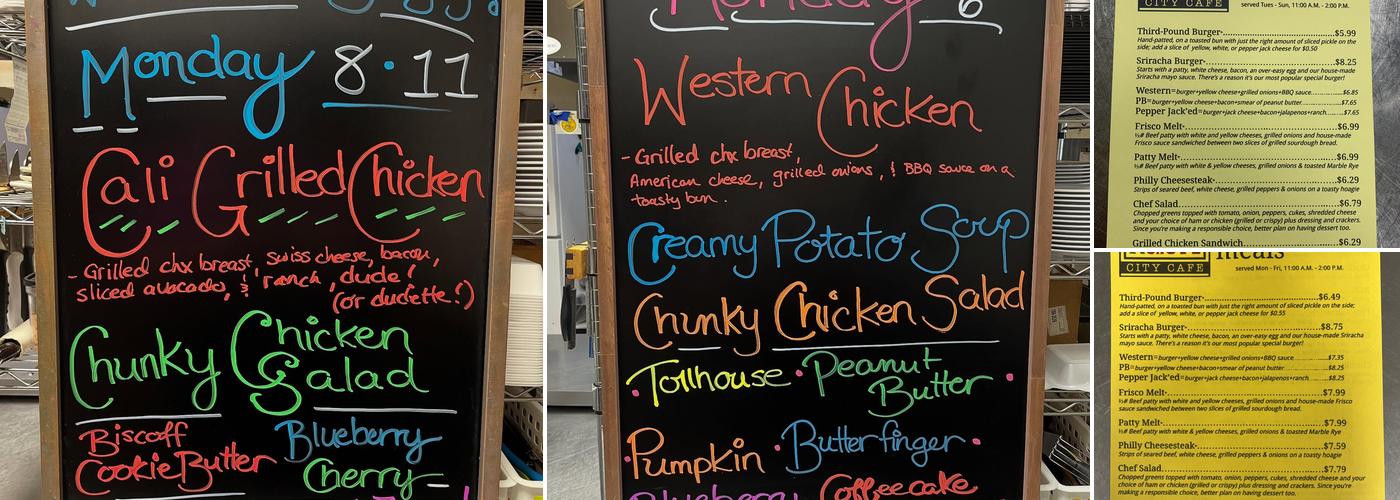 Monday 8.11
Cali Grilled Chicken
- Grilled chx breast, swiss cheese, bacon,
sliced avocado, & ranch, dude!
(or dudette!)
Chunky Chicken
Salad
Biscoff
Cookie Butter
Blueberry
Cherry
Monday 6
Western Chicken
- Grilled chx breast,
American cheese, grilled onions, & BBQ sauce on a
toasty bun.
Creamy Potato Soup
Chunky Chicken Salad
Tollhouse · Peanut
Butter ·
Pumpkin · Butterfinger ·
Blueberry Coffeecake
CITY CAFE
served Tues - Sun, 11:00 A.M. - 2:00 P.M.
Third-Pound Burger $5.99
Hand-patted, on a toasted bun with just the right amount of sliced pickle on the
side; add a slice of yellow, white, or pepper jack cheese for $0.50
Sriracha Burger $8.25
Starts with a patty, white cheese, bacon, an over-easy egg and our house-made
Sriracha mayo sauce. There's a reason it's our most popular special burger!
Western=burger+yellow cheese+grilled onions+BBQ sauce $6.85
PB=burger+yellow cheese+bacon+smear of peanut butter $7.65
Pepper Jack'ed=burger+jack cheese+bacon+jalapenos+ranch $7.65
Frisco Melt $6.99
⅓# Beef patty with white and yellow cheeses, grilled onions and house-made
Frisco sauce sandwiched between two slices of grilled sourdough bread.
Patty Melt $6.99
⅓# Beef patty with white & yellow cheeses, grilled onions & toasted Marble Rye
Philly Cheesesteak $6.29
Strips of seared beef, white cheese, grilled peppers & onions on a toasty hoagie
Chef Salad $6.79
Chopped greens topped with tomato, onion, peppers, cukes, shredded cheese
and your choice of ham or chicken (grilled or crispy) plus dressing and crackers.
Since you're making a responsible choice, better plan on having dessert too.
Grilled Chicken Sandwich $6.29
CITY CAFE
meals
served Mon - Fri, 11:00 A.M. - 2:00 P.M.
Third-Pound Burger $6.49
Hand-patted, on a toasted bun with just the right amount of sliced pickle on the side;
add a slice of yellow, white, or pepper jack cheese for $0.55
Sriracha Burger $8.75
Starts with a patty, white cheese, bacon, an over-easy egg and our house-made Sriracha
mayo sauce. There's a reason it's our most popular special burger!
Western=burger+yellow cheese+grilled onions+BBQ sauce $7.35
PB=burger+yellow cheese+bacon+smear of peanut butter $8.25
Pepper Jack'ed=burger+jack cheese+bacon+jalapenos+ranch $8.25
Frisco Melt $7.99
⅓# Beef patty with white and yellow cheeses, grilled onions and house-made Frisco
sauce sandwiched between two slices of grilled sourdough bread.
Patty Melt $7.99
⅓# Beef patty with white & yellow cheeses, grilled onions & toasted Marble Rye
Philly Cheesesteak $7.59
Strips of seared beef, white cheese, grilled peppers & onions on a toasty hoagie
Chef Salad $7.79
Chopped greens topped with tomato, onion, peppers, cukes, shredded cheese and your
choice of ham or chicken (grilled or crispy) plus dressing and crackers. Since you're
making a responsible choice, better plan on having dessert too.